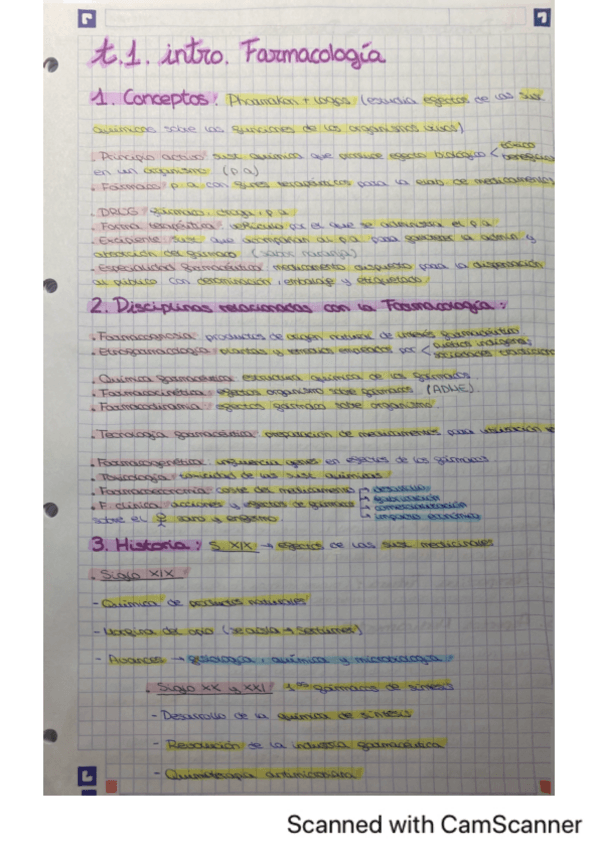 t.1. intro. Farmacología
1. Conceptos: Pharmakon + logos (estudia efectos de las sust
químicas sobre las funciones de los organismos vivos)
. Principio activo: sust. química que produce efecto biológico < tóxico
beneficioso
en un organismo (p.a)
. Fármaco: p.a con fines terapéuticos para la elab. de medicamentos
. DRUG: fármaco, droga, p.a
. Forma terapéutica: vehículo por el que se administra el p.a
. Excipiente: sust. que acompañan al p.a para facilitar la admin y
absorción del fármaco (sabor naranja)
. Especialidad farmacéutica: medicamento dispuesto para la dispensación
al público con denominación, embalaje y etiquetado
2. Disciplinas relacionadas con la Farmacología:
. Farmacognosia: productos de origen natural de interés farmacéutico
. Etnofarmacología: plantas y remedios empleados por < pueblos indígenas
sociedades tradicion
. Química farmacéutica: estructura química de los fármacos
. Farmacocinética: efectos organismo sobre fármaco (ADME)
. Farmacodinamia: efectos fármaco sobre organismo
. Tecnología farmacéutica: preparación de medicamentos para utilización
. Farmacogenética: influencia genes en efectos de los fármacos
. Toxicología: toxicidad de las sust. químicas
. Farmacoeconomía: coste del medicamento desarrollo
fabricación
. F. clínica: acciones y efectos de fármacos comercialización
sobre el sano y enfermo impacto económico
3. Historia: S. XIX → efectos de las sust. medicinales
. Siglo XIX
- Química de productos naturales
- Morfina del opio (se aísla → Sertürner)
- Avances → fisiología, química y microbiología
. Siglo XX y XXI 1os fármacos de síntesis
- Desarrollo de la química de síntesis
- Revolución de la industria farmacéutica
- Quimioterapia antimicrobiana
Scanned with CamScanner